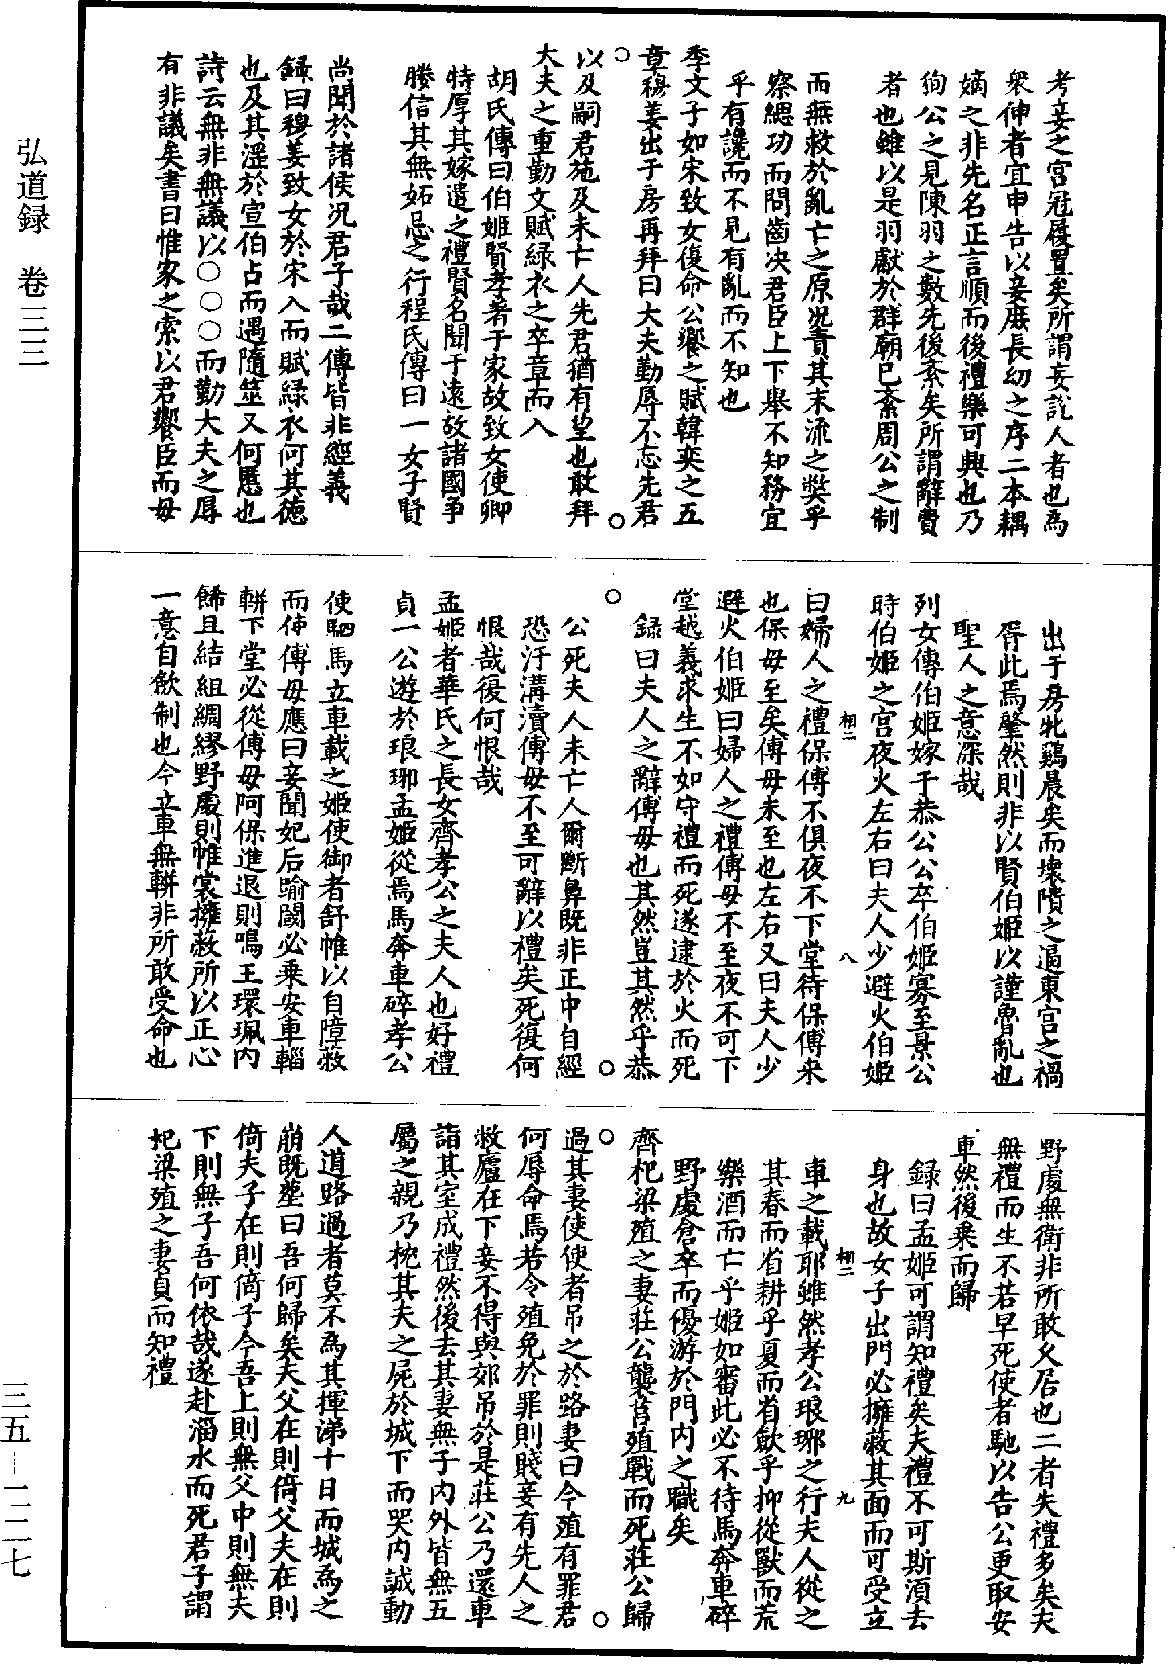 考妾之宮冠履置矣所謂妄說人者也爲
衆仲者宜申告以妾庶長幼之序二本耦
嫡之非先名正言順而後禮樂可興也乃
徇公之見陳羽之數先後紊矣所謂辭費
者也雖以是羽獻於群廟已紊周公之制
而無救於亂亡之原况責其末流之獘乎
察緦功而問齒决君臣上下舉不知務宜
乎有讒而不見有亂而不知也
季文子如宋致女復命公饗之賦韓奕之五
章穆姜出于房再拜曰大夫勤辱不忘先君
以及嗣君施及未亡人先君猶有望也敢拜
大夫之重勤文賦綠衣之卒章而入
胡氏傳曰伯姬賢孝著于家故致女使卿
特厚其嫁遣之禮賢名聞于遠故諸國爭
媵信其無妬忌之行程氏傳曰一女子賢
尚聞於諸侯况君子哉二傳皆非經義
錄曰穆姜致女於宋入而賦綠衣何其德
也及其淫於宣伯占而遇隨筮又何慝也
詩云無非無議以○○○而勤大夫之辱
有非議矣書曰惟家之索以君饗臣而母
出于房牝鷄晨矣而壞隤之逼東宮之禍
胥此焉肇然則非以賢伯姬以謹魯亂也
聖人之意深哉
列女傳伯姬嫁于恭公公卒伯姬寡至景公
時伯姬之宮夜火左右曰夫人少避火伯姬
曰婦人之禮保傅不俱夜不下堂待保傅來
也保母至矣傅母未至也左右又曰夫人少
避火伯姬曰婦人之禮傅母不至夜不可下
堂越義求生不如守禮而死遂逮於火而死
錄曰夫人之辭傅母也其然豈其然乎恭
公死夫人未亡人爾斷鼻既非正中自經
恐汙溝瀆傅母不至可辭以禮矣死復何
恨哉復何恨哉
孟姬者華氏之長女齊孝公之夫人也好禮
貞一公遊於琅琊孟姬從焉馬奔車碎孝公
使駟馬立車載之姬使御者舒帷以自障蔽
而使傅母應曰妾聞妃后踰閾必乘安車輜
軿下堂必從傅母阿保進退則鳴玉環珮内
餙且結組綢繆野處則帷裳擁蔽所以正心
一意自歛制也今立車無軿非所敢受命也
野處無衛非所敢久居也二者失禮多矣夫
無禮而生不若早死使者馳以告公更取安
車然後乘而歸
錄曰孟姬可謂知禮矣夫禮不可斯湏去
身也故女子出門必擁蔽其面而可受立
車之載耶雖然孝公琅琊之行夫人從之
其春而省耕乎夏而省歛乎抑從獸而荒
樂酒而亡乎姬如審此必不待馬奔車碎
野處倉卒而優游於門内之職矣
齊杞梁殖之妻莊公襲莒殖戰而死莊公歸
過其妻使使者吊之於路妻曰今殖有罪君
何辱命焉若令殖免於罪則賤妾有先人之
敝廬在下妾不得與郊吊於是莊公乃還車
詣其室成禮然後去其妻無子内外皆無五
屬之親乃枕其夫之屍於城下而哭内諴動
人道路過者莫不為其揮涕十日而城為之
崩既塟曰吾何歸矣夫父在則倚父夫在則
倚夫子在則倚子今吾上則無父中則無夫
下則無子吾何依哉遂赴淄水而死君子謂
杞梁殖之妻貞而知禮
弘道録 卷三三
三五-一二七